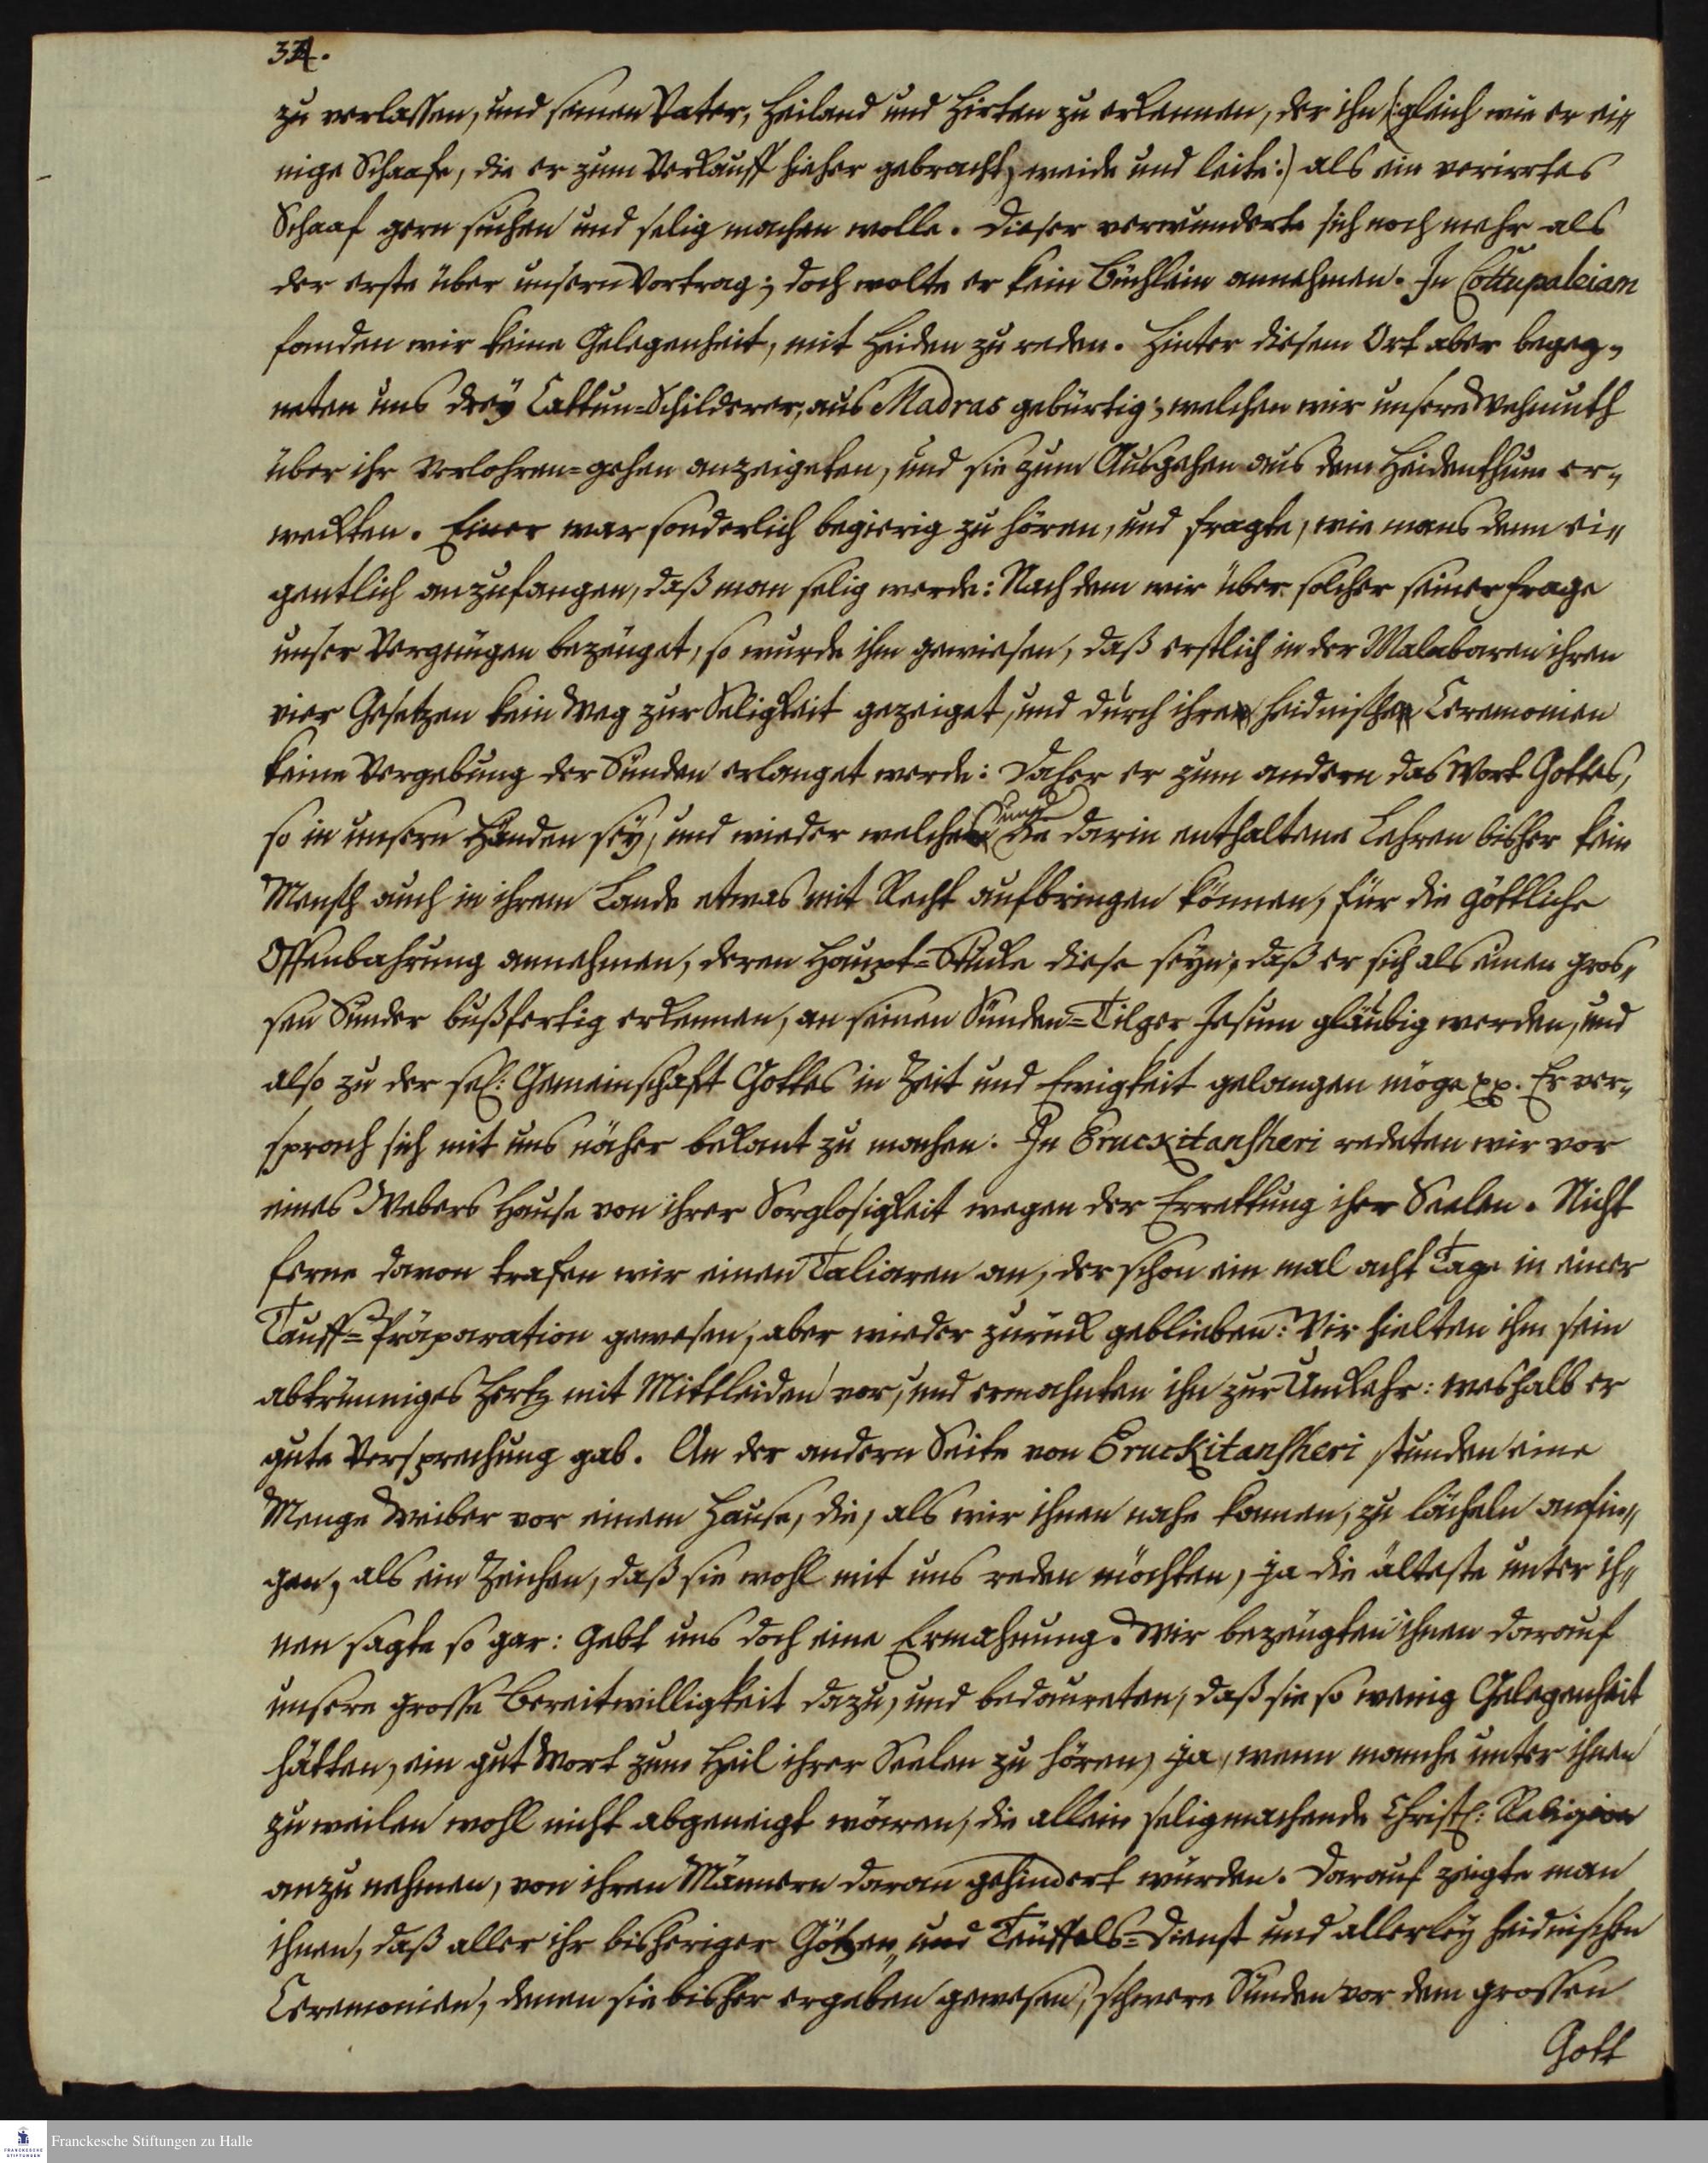 334.
zu verlassen, und seinen Vater, Heiland und Hirten zu erkennen, der ihn (:gleich wie er ei-
nige Schaafe, die er zum Verkauff hieher gebracht, weide und leite:) als ein verirrtes
Schaaf gern suchen und selig machen wolle. Dieser verwunderte sich noch mehr als
der erste über unsern Vortrag; doch wolte er kein Büchlein annehmen. In Cottupaleiam
fanden wir keine Gelegenheit, mit Heiden zu reden. Hinter diesem Ort aber begeg-
neten uns drey Cattun=Schilderer, aus Madras gebürtig; welchen wir unsere Wehmuth
über ihr Verlohren=gehen anzeigeten, und sie zum Ausgehen aus dem Heidenthum er-
weckten. Einer war sonderlich begierig zu hören, und fragte, wie mans denn ei-
gentlich anzufangen, daß man selig werde: Nachdem wir über solcher seiner Frage
unser Vergnügen bezeuget, so wurde ihm gewiesen, daß erstlich in der Malabaren ihren
vier Gesetzen kein Weg zur Seligkeit gezeiget, und durch ihre heidnische Ceremonien
keine Vergebung der Sünden erlanget werde: Daher er zum andern das Wort Gottes,
so in unsern Händen sey, und wieder welches und die darin enthaltene Lehren bisher kein
Mensch auch in ihrem Lande etwas mit Recht aufbringen können, für die göttliche
Offenbahrung annehmen, deren Haupt=Stücke diese seyn; daß er sich als einen gros-
sen Sünder bußfertig erkennen, an seinen Sünden=Tilger Jesum gläubig werden, und
also zu der sel: Gemeinschaft Gottes in Zeit und Ewigkeit gelangen möge pp. Er ver-
sprach sich mit uns näher bekant zu machen. In Eruckitansheri redeten wir vor
eines Webers Hause von ihrer Sorglosigkeit wegen der Errettung iher Seelen. Nicht
ferne davon trafen wir einen Taliaren an, der schon ein mal acht Tage in einer
Tauff=Präparation gewesen, aber wieder zurück geblieben: Wir hielten ihm sein
abtrünniges Hertz mit Mittleiden vor, und ermahnten ihn zur Umkehr: weshalb er
gute Versprechung gab. An der andern Seite von Eruckitansheri stunden eine
Menge Weiber vor einem Hause, die, als wir ihnen nahe kamen, zu lächeln anfin-
gen, als ein Zeichen, daß sie wohl mit uns reden möchten, ja die älteste unter ih-
nen sagte so gar: Gebt uns doch eine Ermahnung. Wir bezeugten ihnen darauf
unsere grosse Bereitwilligkeit dazu, und bedaureten, daß sie so wenig Gelegenheit
hätten, ein gut Wort zum Heil ihrer Seelen zu hören, ja, wenn manche unter ihnen
zuweilen wohl nicht abgeneigt wären, die allein seligmachende Christl: Religion
anzunehmen, von ihren Männern daran gehindert würden. Darauf zeigte man
ihnen, daß aller ihr bisheriger Götzen- und Teuffels=Dienst und allerley heidnischen
Ceremonien, denen sie bisher ergeben gewesen, schwere Sünden vor dem grossen
Gott
FRANCKESCHE STIFTUNGEN
Franckesche Stiftungen zu Halle